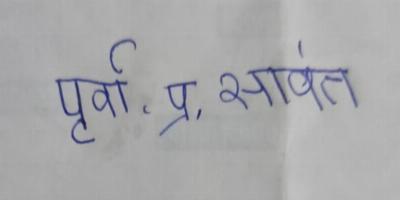 पूर्वा. प्र. सावंत